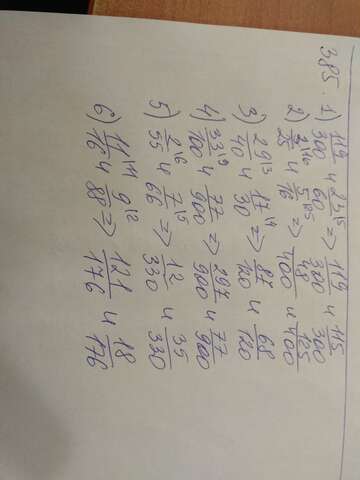 385. 1) 119/300 и 23/60 ⁵ => 119/300 и 115/300
2) 3/25 ¹⁶ и 5/16 ²⁵ => 48/400 и 125/400
3) 29/40 ³ и 17/30 ⁴ => 87/120 и 68/120
4) 33/100 ⁹ и 77/900 => 297/900 и 77/900
5) 2/55 ⁶ и 7/66 ⁵ => 12/330 и 35/330
6) 11/16 ¹¹ и 9/88 ² => 121/176 и 18/176